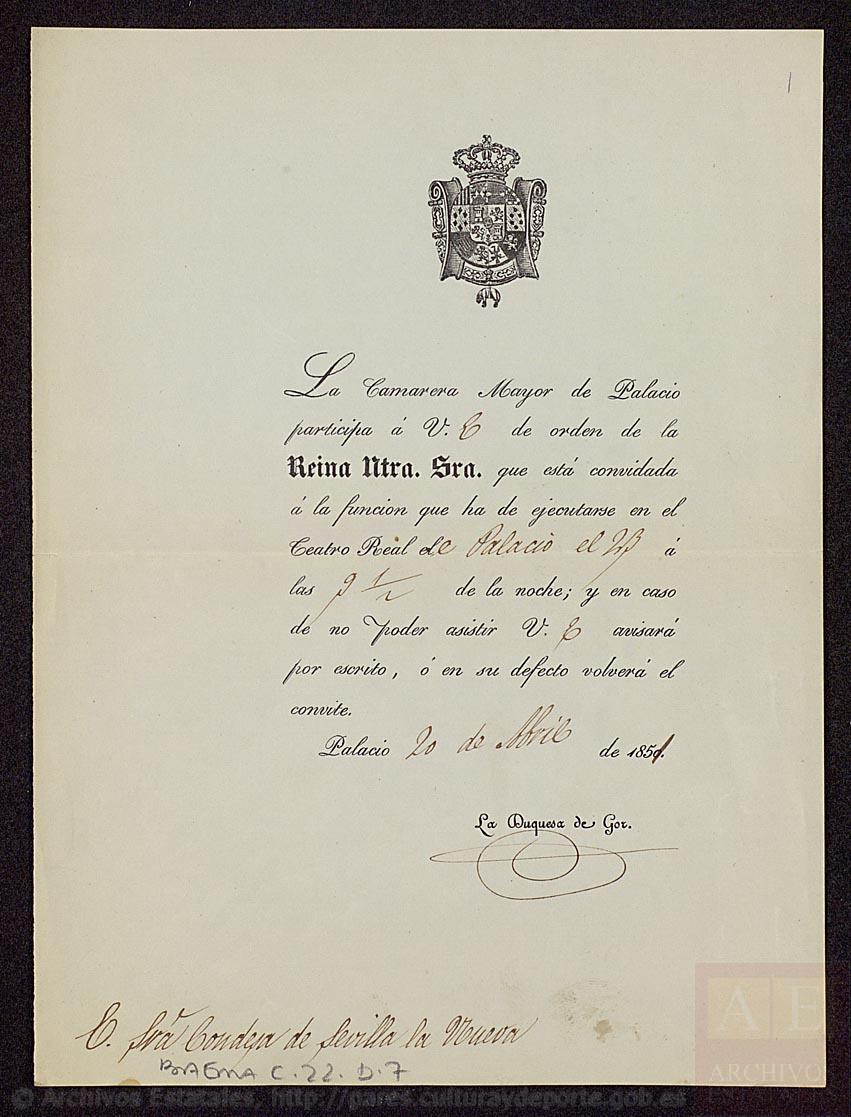 1
La Camarera Mayor de Palacio
participa á V. E de orden de la
Reina Ntra. Sra. que está convidada
á la funcion que ha de ejecutarse en el
Teatro Real de Palacio el 23 á
las 9 1/2 de la noche; y en caso
de no poder asistir V. E avisará
por escrito, ó en su defecto volverá el
convite.
Palacio 20 de Abril de 1851.
La Duquesa de Gor.
E. Sra Condesa de Sevilla la Nueva
BAENA C. 22. D. 7
AE
ARCHIVO
© Archivos Estatales, http://pares.culturaydeporte.gob.es